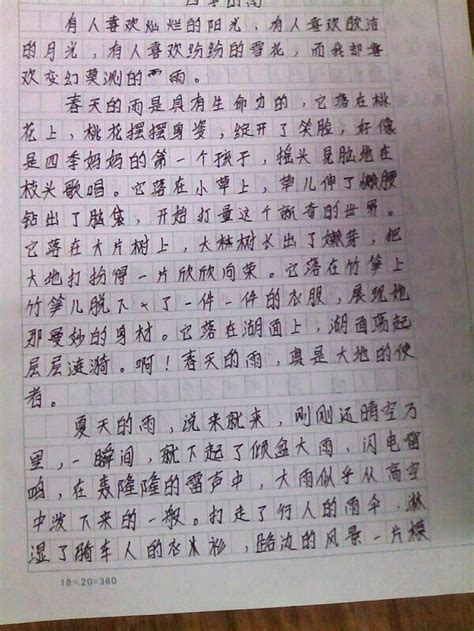 四季的雨
有人喜欢灿烂的阳光，有人喜欢皎洁
的月光，有人喜欢纷纷的雪花，而我却喜
欢变幻莫测的雨。
春天的雨是具有生命力的，它落在桃
花上，桃花摆摆身姿，绽开了笑脸，好像
是四季妈妈的第一个孩子，摇头晃脑地在
枝头歌唱。它落在小草上，草儿伸了嫩腰
钻出了脑袋，开始打量这个新奇的世界。
它落在大片树上，大树长出了嫩芽，把
大地打扮得一片欣欣向荣。它落在竹笋上
竹笋儿脱下了一件一件的衣服，展现她
那曼妙的身材。它落在湖面上，湖面荡起
层层涟漪。啊！春天的雨，真是大地的使
者。
夏天的雨，说来就来，刚刚还晴空万
里，一瞬间，就下起了倾盆大雨，闪电雷
鸣，在轰隆隆的雷声中，大雨似乎从高空
中泼下来的一般。打走了行人的雨伞，淋
湿了骑车人的衣衫，路边的风景一片模
18×20=360